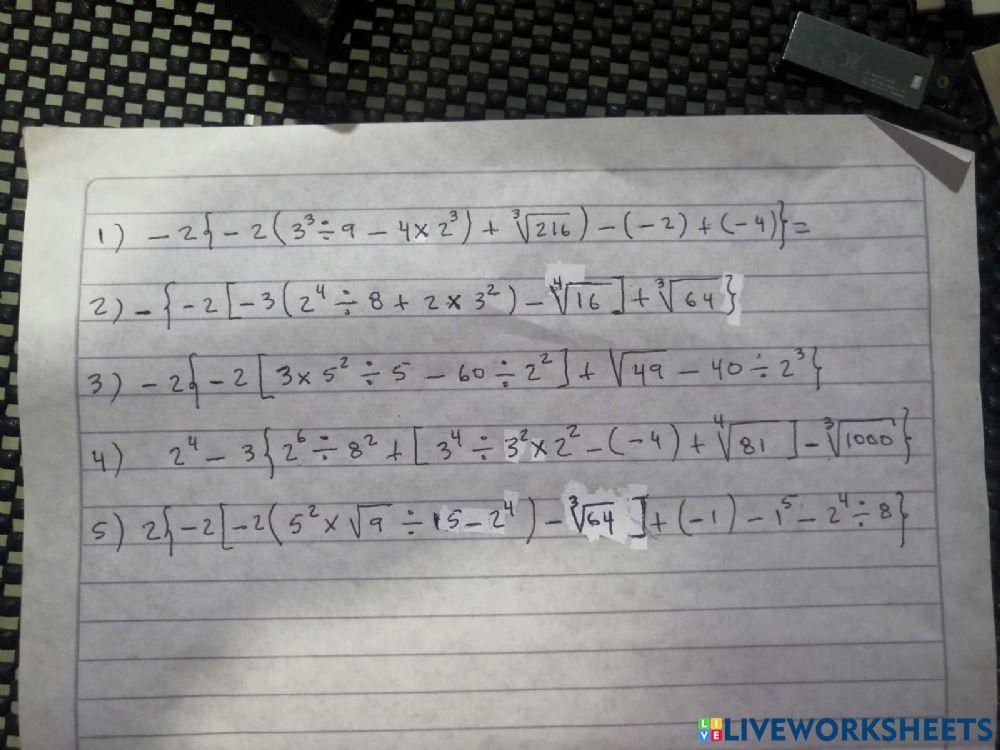 1) -2{-2(3³÷9 - 4×2³) + ∛216) - (-2) + (-4)}=
2) -{-2[-3(2⁴÷8 + 2×3²) - ∜16] + ∛64}
3) -2{-2[3×5²÷5 - 60÷2²] + √49 - 40÷2³}
4) 2⁴ - 3{2⁶÷8² + [3⁴÷3²×2² - (-4) + ∜81] - ∛1000}
5) 2{-2[-2(5²×√9÷15 - 2⁴) - ∛64] + (-1) - 1⁵ - 2⁴÷8}
LIVE LIVEWORKSHEETS